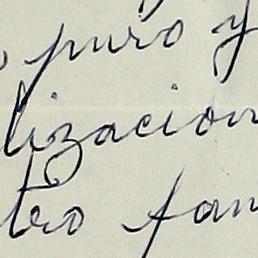 puro y
lizacion
tro fam